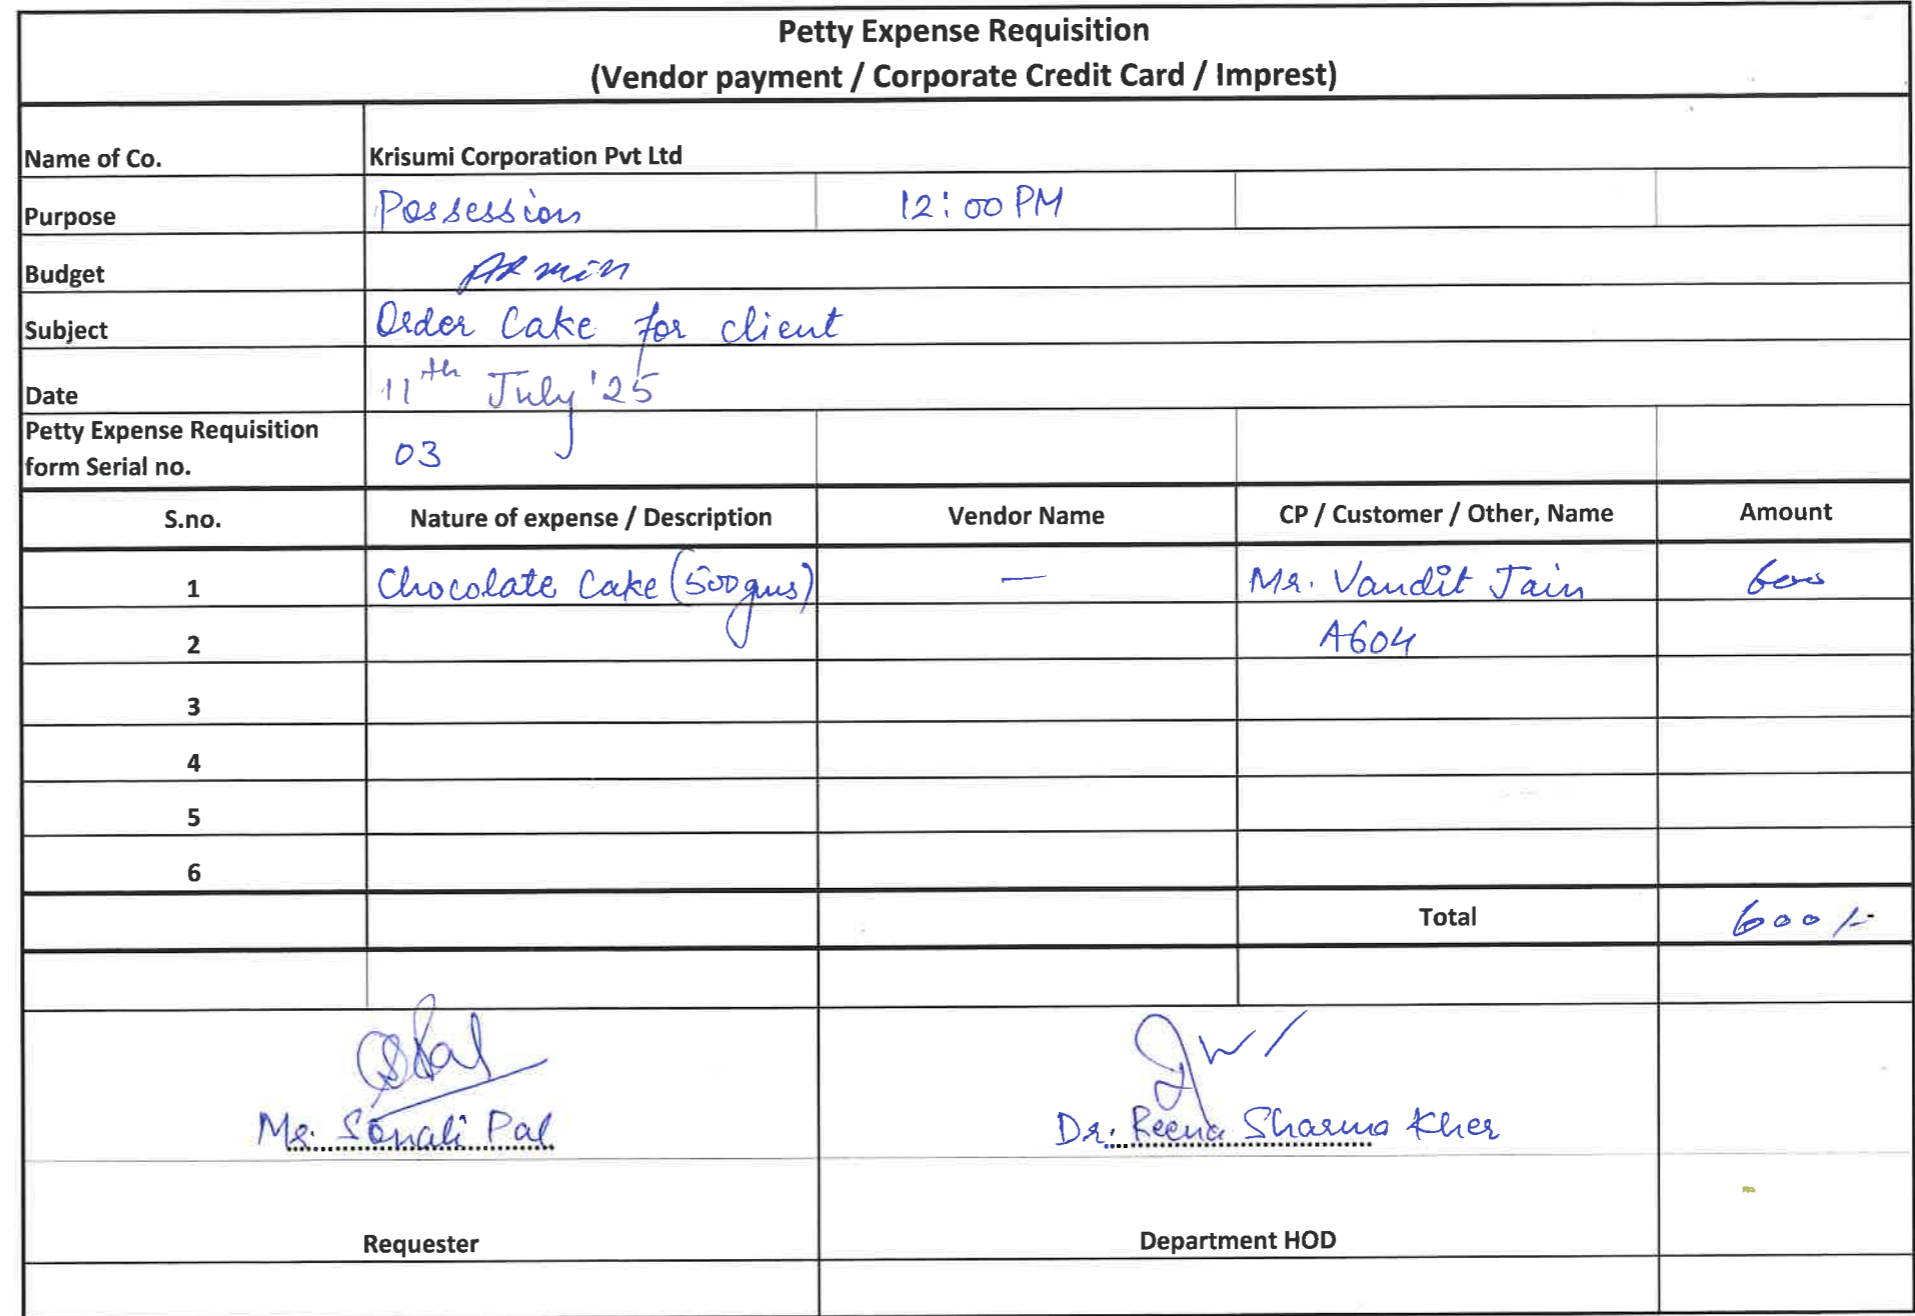 Petty Expense Requisition
(Vendor payment / Corporate Credit Card / Imprest)
Name of Co. Krisumi Corporation Pvt Ltd
Purpose Possession 12:00 PM
Budget Admin
Subject Order Cake for client
Date 11th July '25
Petty Expense Requisition
form Serial no. 03
S.no. Nature of expense / Description Vendor Name CP / Customer / Other, Name Amount
1 Chocolate Cake (500gms) — Mr. Vandit Jain 600
2 A604
3
4
5
6
Total 600/-
Ms. Sonali Pal Dr. Reena Sharma Kher
Requester Department HOD